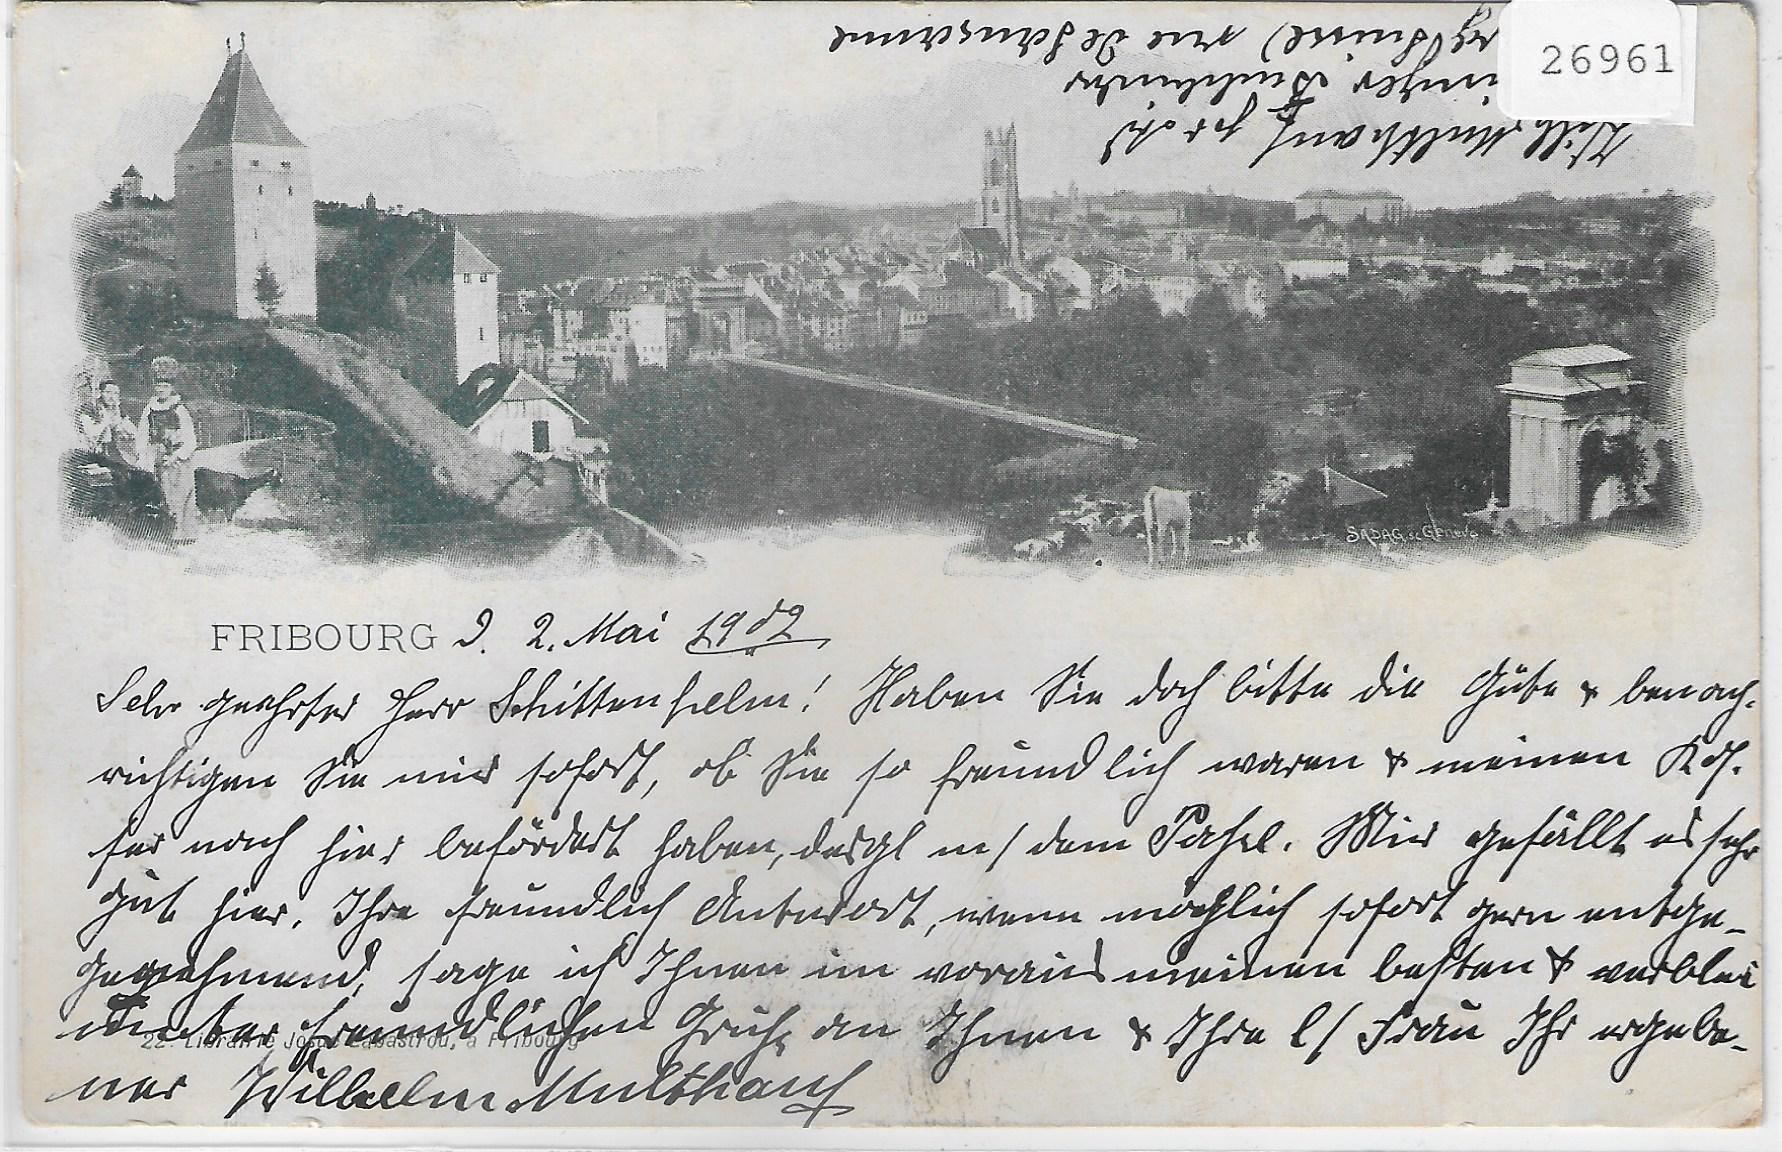 26961
Wilh. Multhauf pr ad
rue de Lausanne
SADAG. sc Genève
FRIBOURG d. 2. Mai 1902
Sehr geehrter Herr Schittenhelm! Haben Sie doch bitte die Güte & benach-
richtigen Sie mir sofort, ob Sie so freundlich waren & meinen Kof-
fer nach hier befördert haben, desgl m/ dem Packet. Mir gefällt es sehr
gut hier. Ihre freundlich Antwort, wenn möglich sofort gern entge-
gegennehmend, sage ich Ihnen im voraus meinen besten & verblei
unter freundlichen Gruß an Ihnen & Ihre l/ Frau Ihr ergebe-
22. Librairie Josué Labastrou, à Fribourg
ner Wilhelm Multhauf